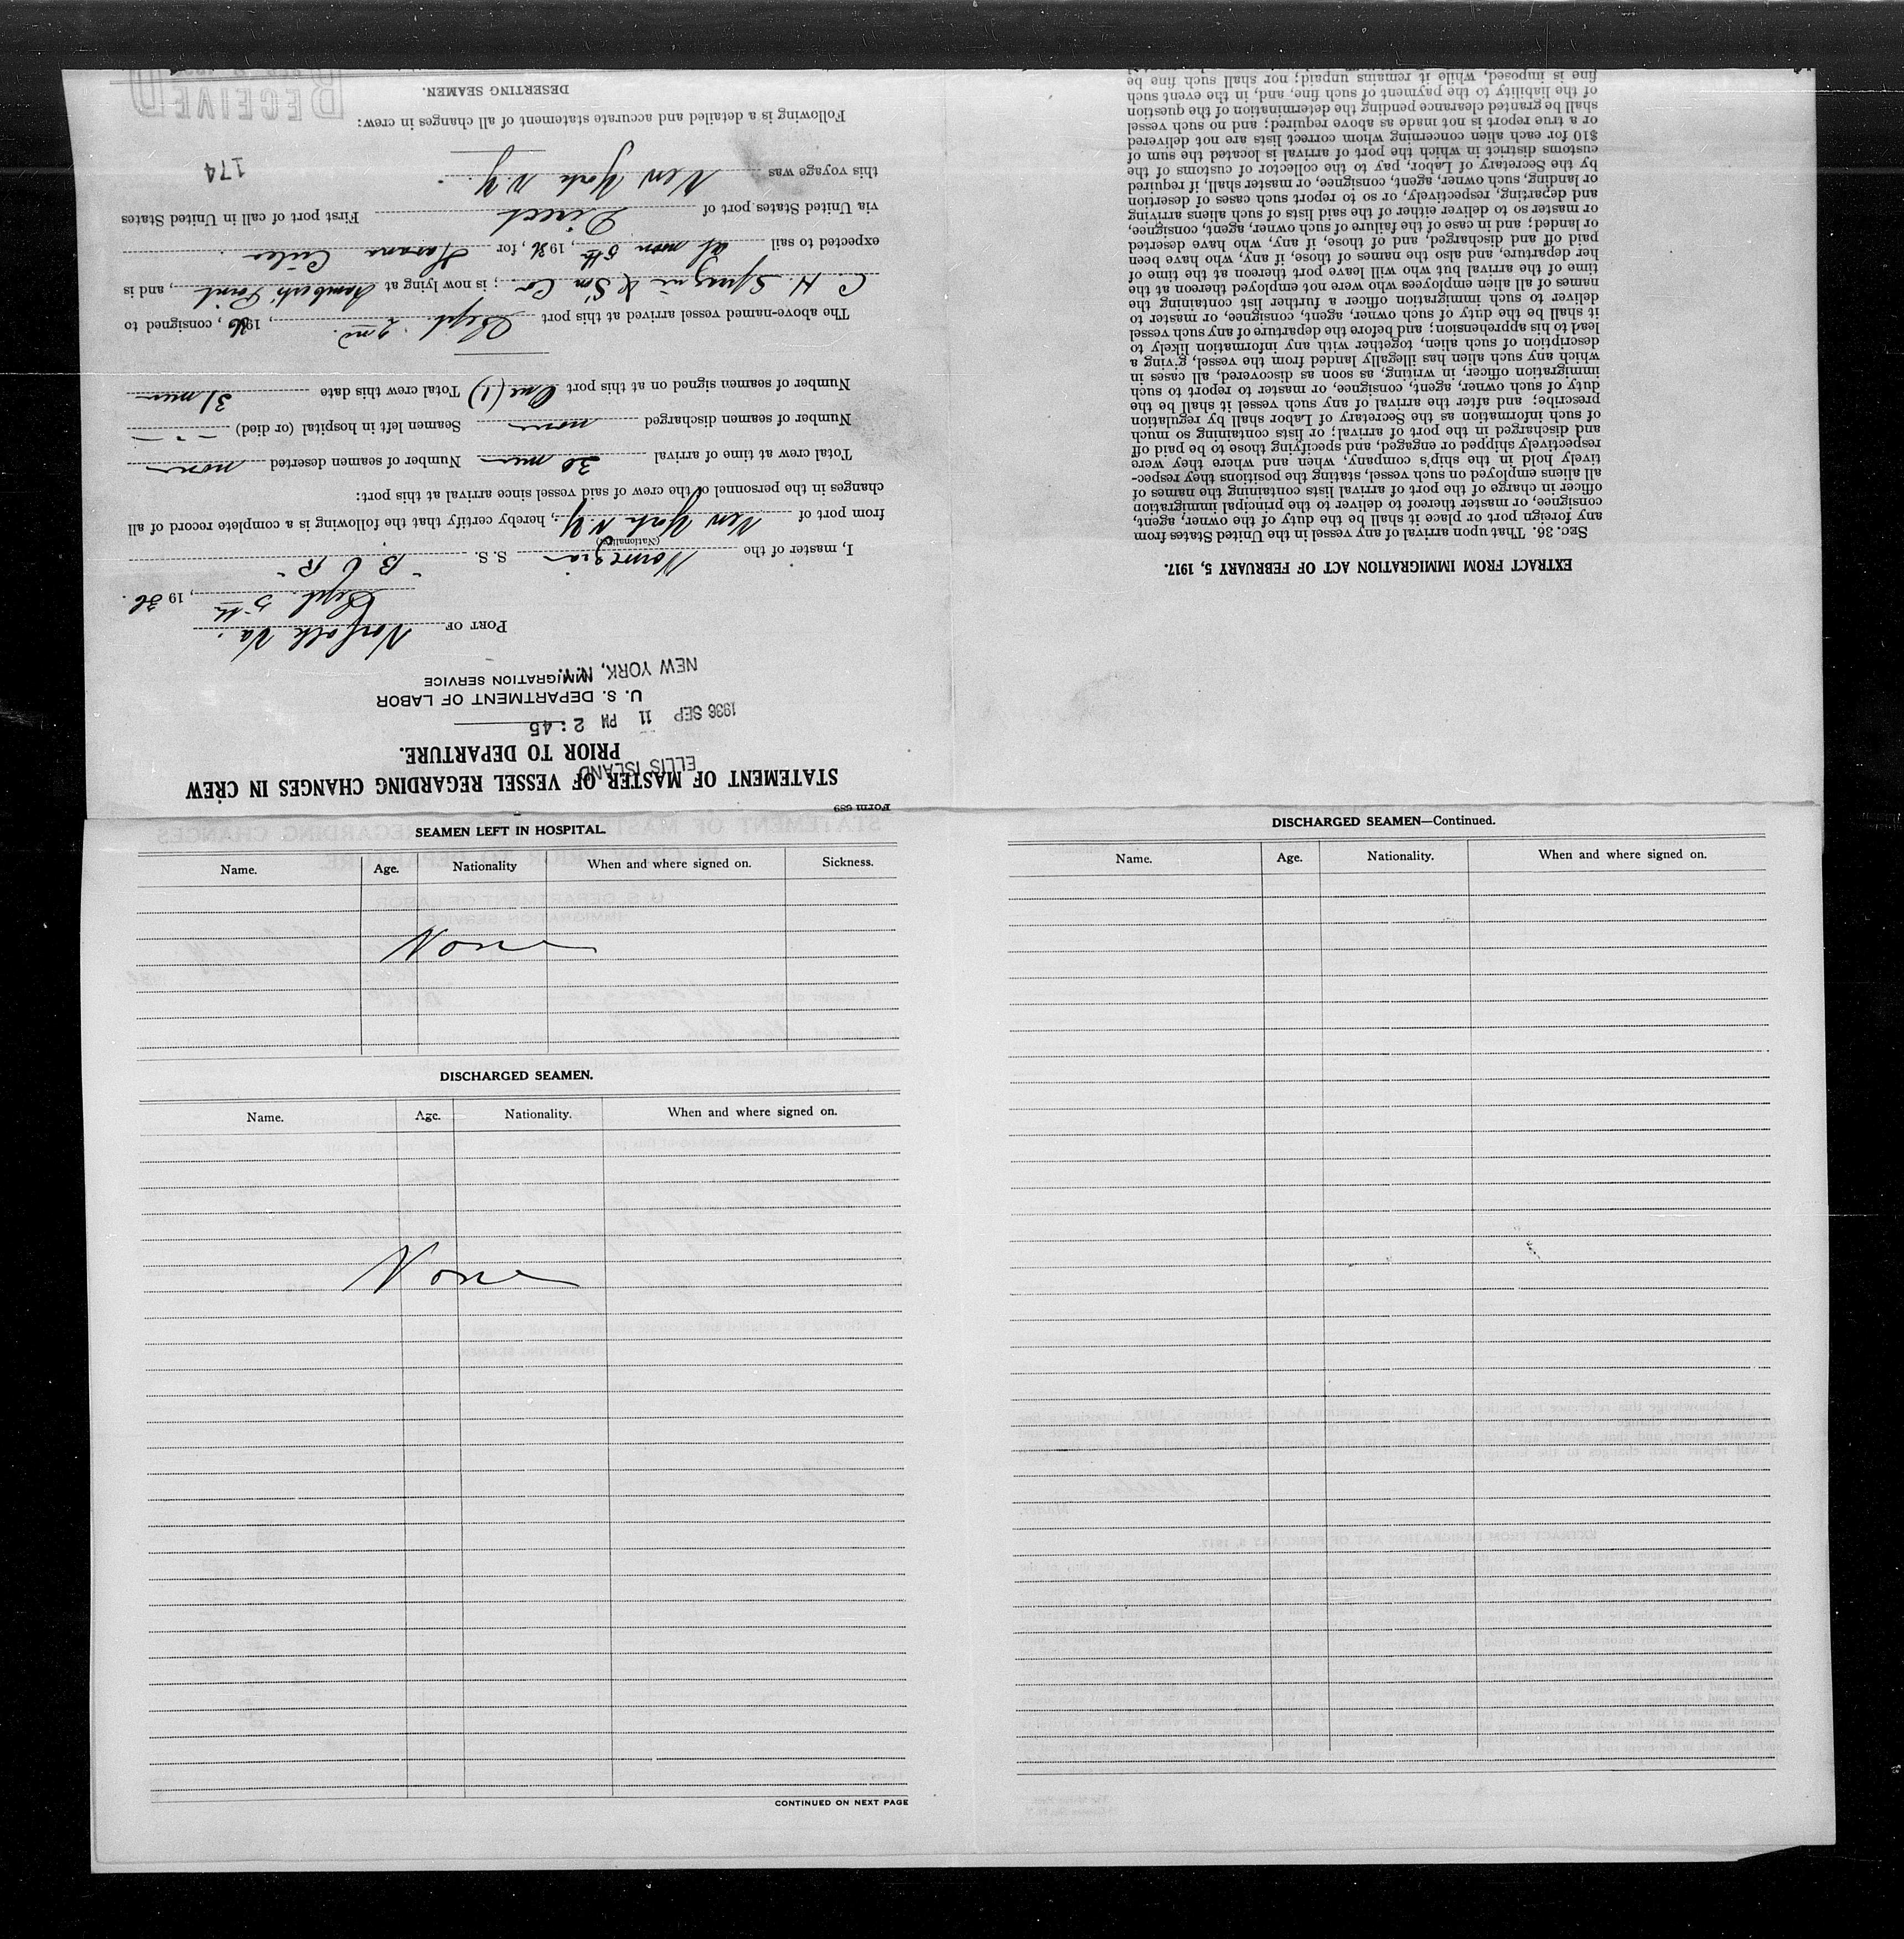 Form 689
STATEMENT OF MASTER OF VESSEL REGARDING CHANGES IN CREW
PRIOR TO DEPARTURE.
ELLIS ISLAND
1936 SEP 11 PM 2:45
U. S. DEPARTMENT OF LABOR
IMMIGRATION SERVICE
NEW YORK, N.Y.
PORT OF Norfolk Va.
Sept. 5th, 1936.
I, master of the Norwegian S. S.
(Nationality)
from port of New York N.Y., hereby certify that the following is a complete record of all
changes in the personnel of the crew of said vessel since arrival at this port:
Total crew at time of arrival 30 men Number of seamen deserted none
Number of seamen discharged none Seamen left in hospital (or died) - " -
Number of seamen signed on at this port One (1) Total crew this date 31 men
The above-named vessel arrived at this port Sept. 2nd., 1936, consigned to
C. H. Sprague & Son Co; is now lying at Lamberts Point, and is
expected to sail at noon 5th, 1936, for Havana Cuba.
via United States port of Direct First port of call in United States
this voyage was New York N.Y.
174
Following is a detailed and accurate statement of all changes in crew:
DESERTING SEAMEN.
RECEIVED
EXTRACT FROM IMMIGRATION ACT OF FEBRUARY 5, 1917.
SEC. 36. That upon arrival of any vessel in the United States from
any foreign port or place it shall be the duty of the owner, agent,
consignee, or master thereof to deliver to the principal immigration
officer in charge of the port of arrival lists containing the names of
all aliens employed on such vessel, stating the positions they respec-
tively hold in the ship's company, when and where they were
respectively shipped or engaged, and specifying those to be paid off
and discharged in the port of arrival; or lists containing so much
of such information as the Secretary of Labor shall by regulation
prescribe; and after the arrival of any such vessel it shall be the
duty of such owner, agent, consignee, or master to report to such
immigration officer, in writing, as soon as discovered, all cases in
which any such alien has illegally landed from the vessel, giving a
description of such alien, together with any information likely to
lead to his apprehension; and before the departure of any such vessel
it shall be the duty of such owner, agent, consignee, or master to
deliver to such immigration officer a further list containing the
names of all alien employees who were not employed thereon at the
time of the arrival but who will leave port thereon at the time of
her departure, and also the names of those, if any, who have been
paid off and discharged, and of those, if any, who have deserted
or landed; and in case of the failure of such owner, agent, consignee,
or master so to deliver either of the said lists of such aliens arriving
and departing, respectively, or so to report such cases of desertion
or landing, such owner, agent, consignee, or master shall, if required
by the Secretary of Labor, pay to the collector of customs of the
customs district in which the port of arrival is located the sum of
$10 for each alien concerning whom correct lists are not delivered
or a true report is not made as above required; and no such vessel
shall be granted clearance pending the determination of the question
of the liability to the payment of such fine, and, in the event such
fine is imposed, while it remains unpaid; nor shall such fine be
SEAMEN LEFT IN HOSPITAL.
Name. Age. Nationality When and where signed on. Sickness.
None
DISCHARGED SEAMEN.
Name. Age. Nationality. When and where signed on.
None
CONTINUED ON NEXT PAGE
DISCHARGED SEAMEN—Continued.
Name. Age. Nationality. When and where signed on.